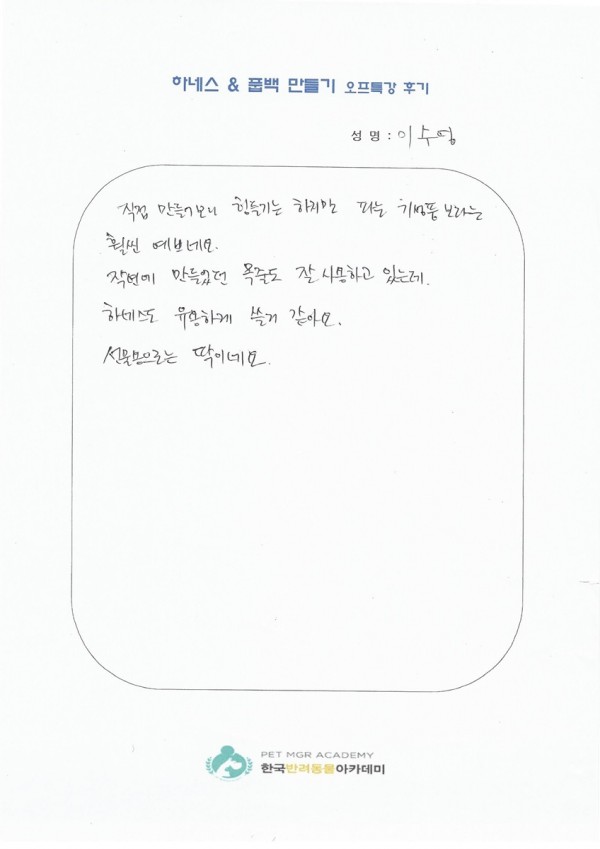 하네스 & 풉백 만들기 오프특강 후기
성 명 : 이수영
직접 만들어보니 힘들기는 하지만 파는 기성품 보다는
훨씬 예쁘네요.
작년에 만들었던 목줄도 잘 사용하고 있는데.
하네스도 유용하게 쓸거 같아요.
선물용으로는 딱이네요.
PET MGR ACADEMY
한국반려동물아카데미